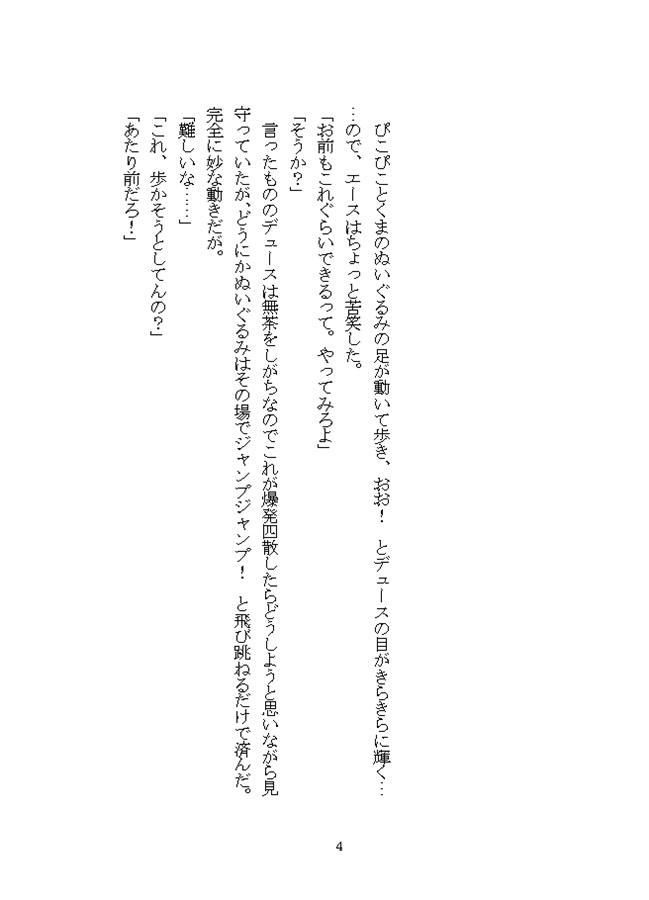 ぴこぴことくまのぬいぐるみの足が動いて歩き、おお！　とデュースの目がきらきらに輝く…
…ので、エースはちょっと苦笑した。
「お前もこれぐらいできるって。やってみろよ」
「そうか？」
　言ったもののデュースは無茶をしがちなのでこれが爆発四散したらどうしようと思いながら見
守っていたが、どうにかぬいぐるみはその場でジャンプジャンプ！　と飛び跳ねるだけで済んだ。
完全に妙な動きだが。
「難しいな……」
「これ、歩かそうとしてんの？」
「あたり前だろ！」
4